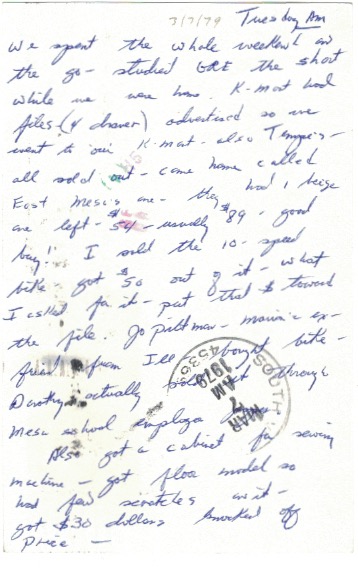 3/7/79 Tuesday AM
We spent the whole weekend on
the go - studied GRE the short
while we were home. K-mart had
files (4 drawer) advertised so we
went to our K-mart - also Tempe's -
all sold out - came home called
East Mesa's one - they had 1 beige
one left - $54 - usually $89 - good
buy! I sold the 10-speed
bike got $50 out of it - what
I asked for it - put that $ toward
the file. Jo Pittman - Marvin's ex-
friend from Ill. bought bike -
Dorothy actually sold it through
Mesa school employee
Also got a cabinet for sewing
machine - got floor model so
had few scratches on it -
got $30 dollars knocked off
price -
SOUTH
45368
MAR
7
AM
1979